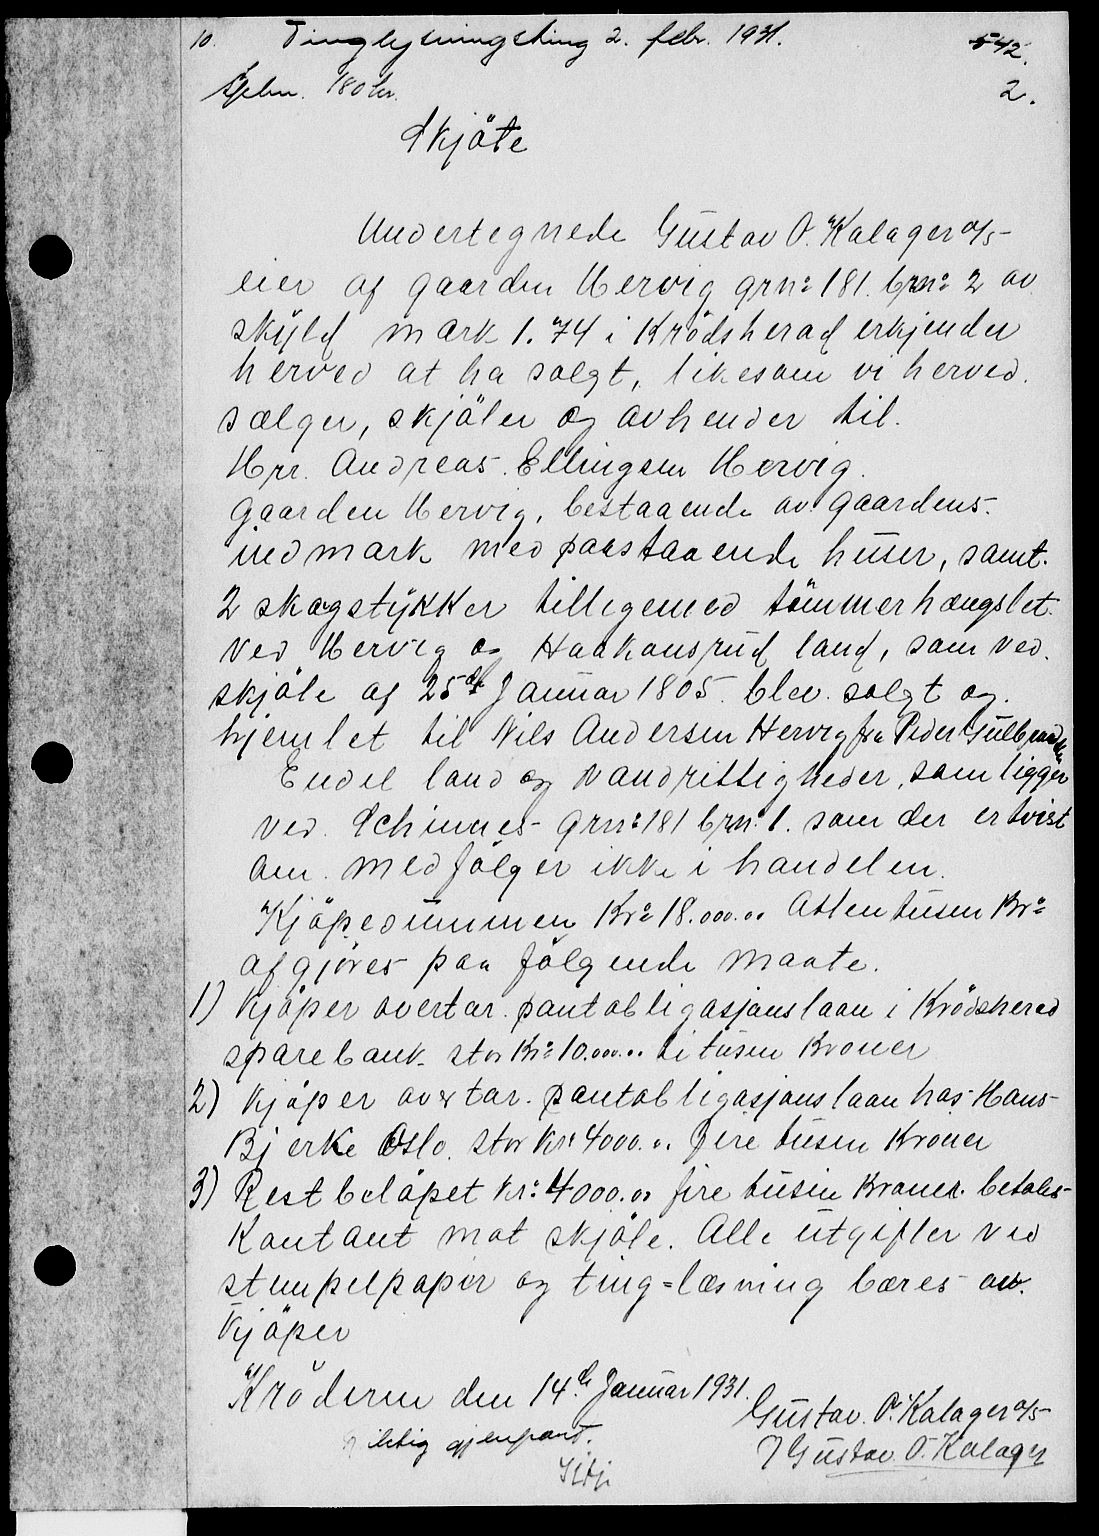 10. Tinglysningsting 2. febr. 1931. 542.
180 kr. 2.
Skjöte
Undertegnede Gustav O. Kalager a/s
eier af gaarden Hervig grn: 181. brn: 2 av
skyld mark 1.74 i Krödsherad erkjender
herved at ha solgt, likesom vi herved
sælger, skjöter og avhender til.
Hrr. Andreas Ellingsen Hervig.
Gaarden Hervig, bestaaende av gaardens
indmark med paastaaende huser, samt.
2 skogstykker tilligemed tömmerhængslet.
ved Hervig og Haakonsrud land, som ved.
skjöte af 25de Januar 1805 blev solgt og
hjemlet til Nils Andersen Hervig fra Peder Gulbrandsen
Endel land og vandrittigheder, som ligger
ved Schinnes grn: 181 brn: 1. som der er tvist
om. medfölger ikke i handelen.
Kjöpesummen Kr: 18.000.00 Atten tusen Kr:
afgjöres paa fölgende maate.
1) Kjöper overtar pantobligasjonslaan i Krödsherad
sparebank stor Kr: 10.000.00 ti tusen Kroner
2) Kjöper overtar pantobligasjonslaan hos Hans
Bjerke Oslo. stor Kr: 4000.00 fire tusen Kroner
3) Restbelöpet Kr: 4000.00 fire tusin Kroner. betales
Kontant mot skjöte. Alle utgifter ved
stempelpapir og ting=læsning bæres av.
Kjöper
Kröderen den 14de Januar 1931.
Gustav. O. Kalager a/s
gjenpart. Gustav. O. Kalager